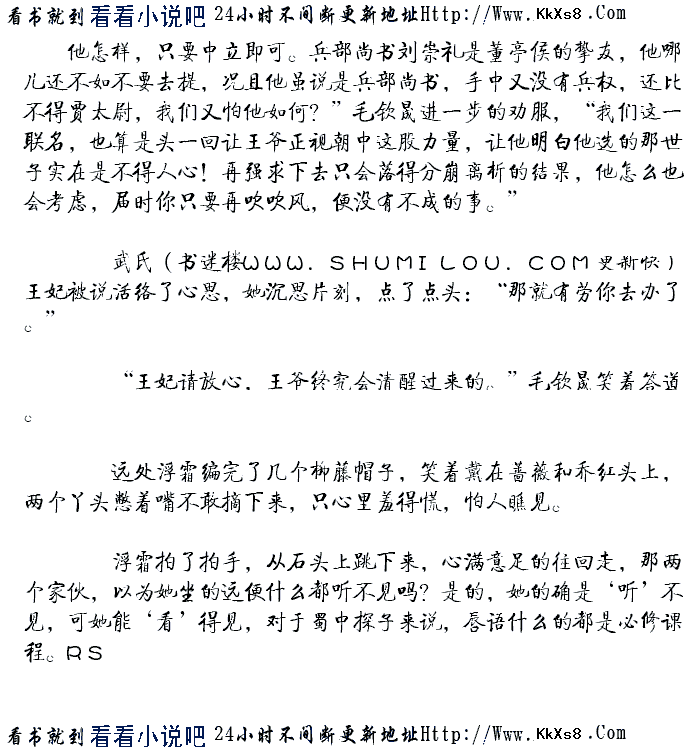 看书就到 看看小说吧 24小时不间断更新地址Http://Www.KkXs8.Com
他怎样，只要中立即可。兵部尚书刘崇礼是董亭侯的挚友，他哪
儿还不如不要去提，况且他虽说是兵部尚书，手中又没有兵权，还比
不得贾太尉，我们又怕他如何？”毛钦晟进一步的劝服，“我们这一
联名，也算是头一回让王爷正视朝中这股力量，让他明白他选的那世
子实在是不得人心！再强求下去只会落得分崩离析的结果，他怎么也
会考虑，届时你只要再吹吹风，便没有不成的事。”
武氏（书迷楼WWW.SHUMILOU.COM更新快）
王妃被说活络了心思，她沉思片刻，点了点头：“那就有劳你去办了
。”
“王妃请放心．王爷终究会清醒过来的。”毛钦晟笑着答道
。
远处浮霜编完了几个柳藤帽子，笑着戴在蔷薇和乔红头上，
两个丫头憋着嘴不敢摘下来，只心里羞得慌，怕人瞧见。
浮霜拍了拍手，从石头上跳下来，心满意足的往回走，那两
个家伙，以为她坐的远便什么都听不见吗？是的，她的确是‘听’不
见，可她能‘看’得见，对于蜀中探子来说，唇语什么的都是必修课
程。RS
看书就到 看看小说吧 24小时不间断更新地址Http://Www.KkXs8.Com